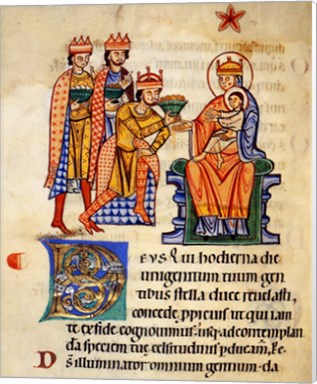 DEVS QVI hodierna die
unigenitum tuum gen
tibus stella duce reuelasti,
concede ppicius ut qui iam
te ex fide cognouimus usq; ad contemplan
da speciem tue celsitudinis pducam. P e
Ds illuminator omnium gentium da